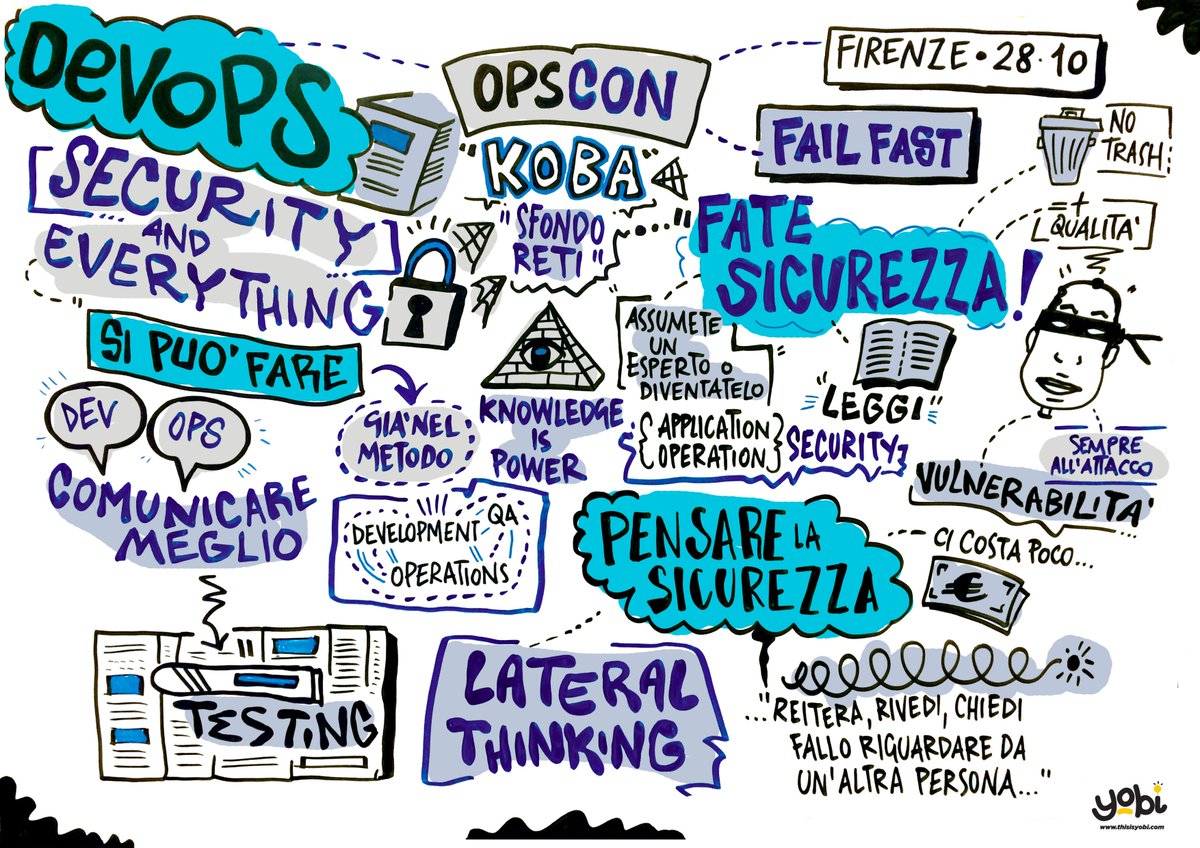 DevOPS
OPSCON
FIRENZE • 28 • 10
KOBA
"SFONDO
RETI"
FAIL FAST
NO
TRASH
= +
QUALITA'
[SECURITY
AND
EVERYTHING]
FATE
SICUREZZA!
SI PUO' FARE
DEV
OPS
COMUNICARE
MEGLIO
GIA' NEL
METODO
KNOWLEDGE
IS
POWER
ASSUMETE
UN
ESPERTO O
DIVENTATELO
{APPLICATION
OPERATION}
SECURITY
"LEGGI"
SEMPRE
ALL'ATTACCO
VULNERABILITA'
DEVELOPMENT
QA
OPERATIONS
PENSARE LA
SICUREZZA
CI COSTA POCO...
€
TESTING
LATERAL
THINKING
..."REITERA, RIVEDI, CHIEDI
FALLO RIGUARDARE DA
UN'ALTRA PERSONA..."
yobi
www.thisisyobi.com